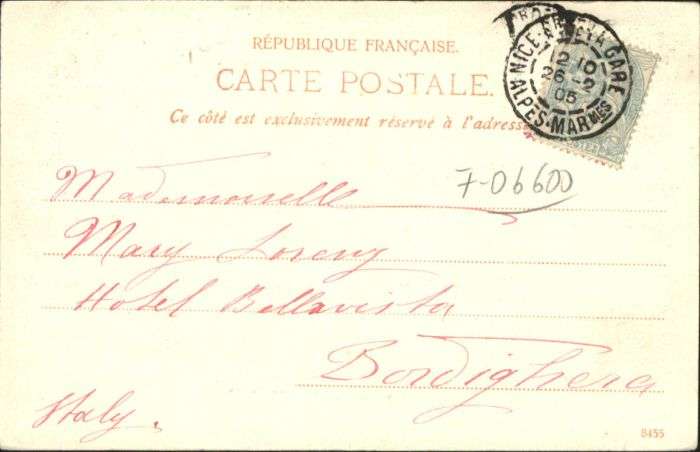 RÉPUBLIQUE FRANÇAISE.
CARTE POSTALE.
Ce côté est exclusivement réservé à l'adresse
NICE
LA GARE
12 10
26-2
05
ALPES-MARMES
7-06600
Mademoiselle
Mary Loreny
Hotel Bellavista
Bordighera
Italy.
8455